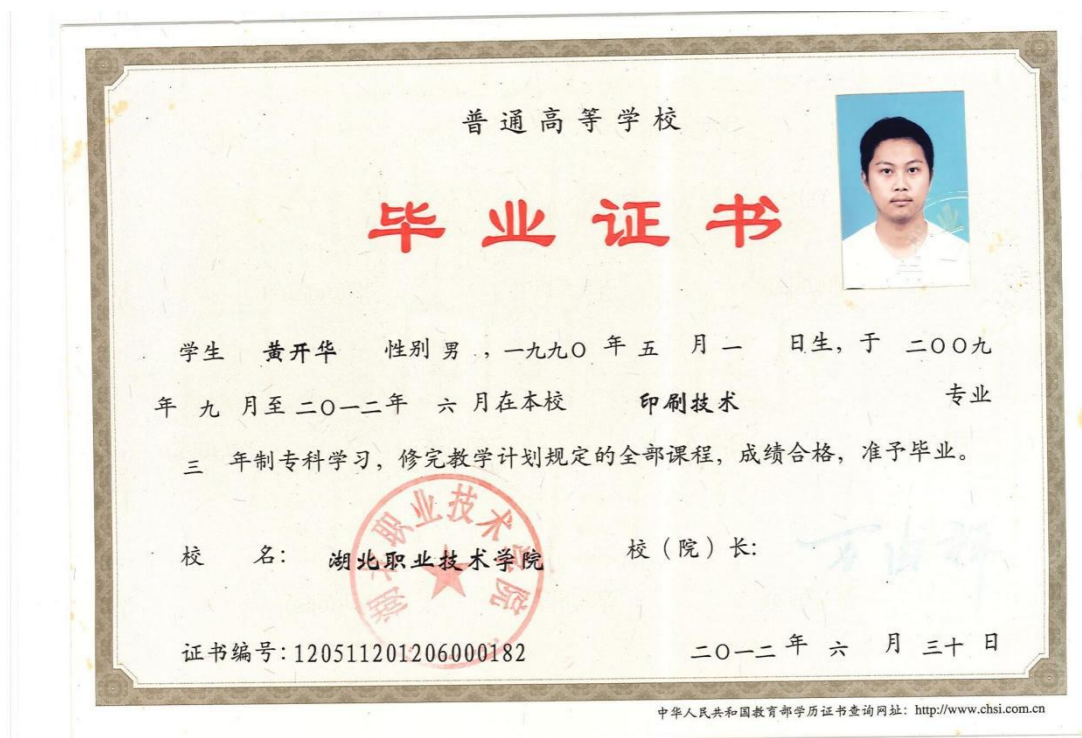 普通高等学校
毕业证书
学生 黄开华 性别 男 ，一九九〇 年 五 月 一 日生，于 二〇〇九
年 九 月至 二〇一二年 六 月在本校 印刷技术 专业
三 年制专科学习，修完教学计划规定的全部课程，成绩合格，准予毕业。
校 名： 湖北职业技术学院 校（院）长：
湖北职业技术学院
证书编号：120511201206000182 二〇一二 年 六 月 三十 日
中华人民共和国教育部学历证书查询网址：http://www.chsi.com.cn